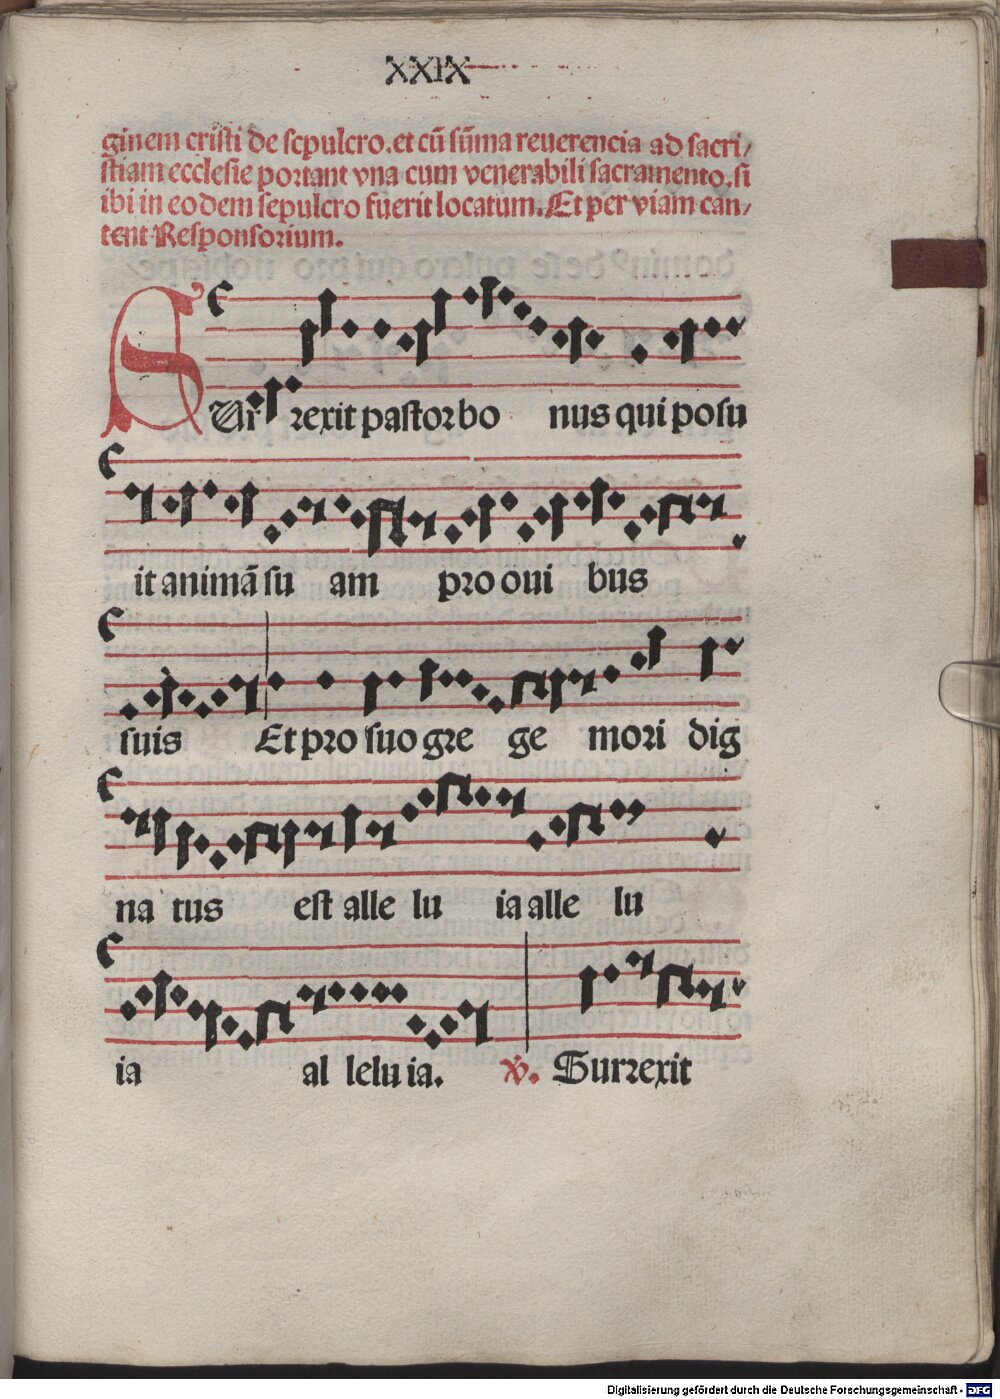 XXIX
ginem cristi de sepulcro. et cū sūma reuerencia ad sacri/
stiam ecclesie portant vna cum venerabili sacramento. si
ibi in eodem sepulcro fuerit locatum. Et per viam can/
tent Responsorium.
SUr rexit pastor bo nus qui posu
it animā su am pro oui bus
suis Et pro suo gre ge mori dig
na tus est alle lu ia alle lu
ia al lelu ia. V. Surrexit
Digitalisierung gefördert durch die Deutsche Forschungsgemeinschaft - DFG